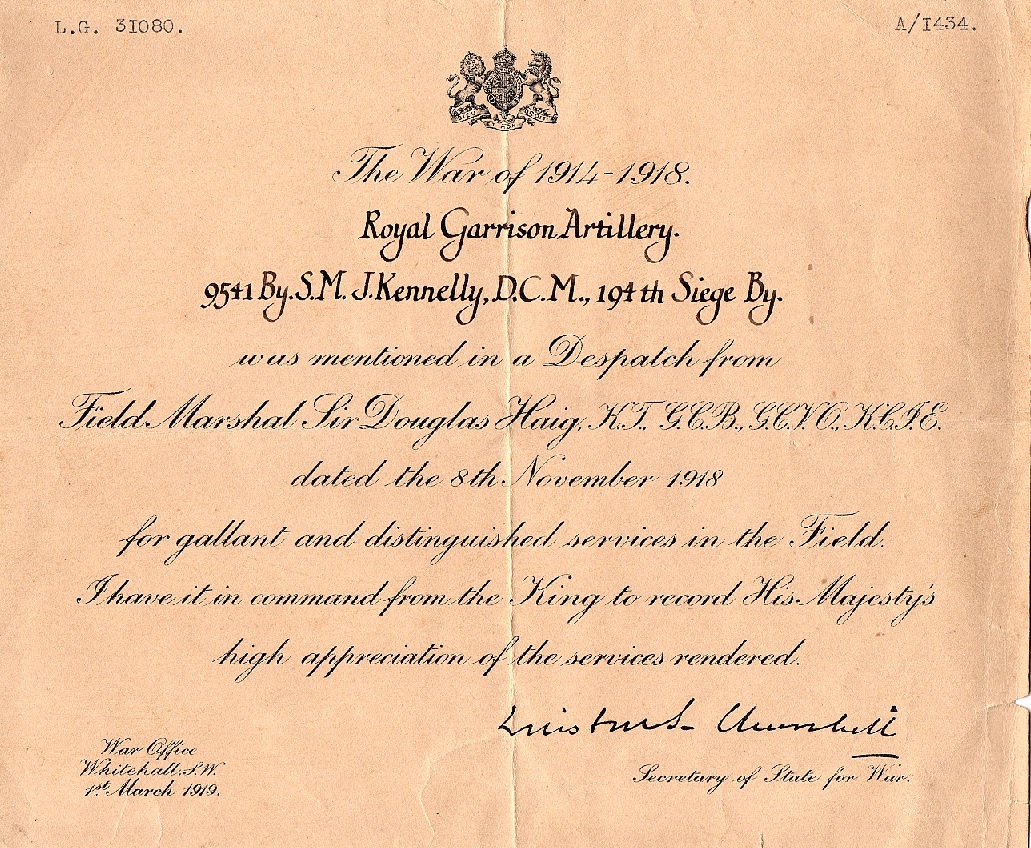 L.G. 31080.
A/1434.
The War of 1914-1918.
Royal Garrison Artillery.
9541 By. S.M. J. Kennelly, D.C.M., 194th Siege By.
was mentioned in a Despatch from
Field Marshal Sir Douglas Haig, K.T., G.C.B., G.C.V.O., K.C.I.E.
dated the 8th November 1918
for gallant and distinguished services in the Field.
I have it in command from the King to record His Majesty's
high appreciation of the services rendered.
Winston S. Churchill
War Office
Whitehall, S.W.
1st March 1919.
Secretary of State for War.